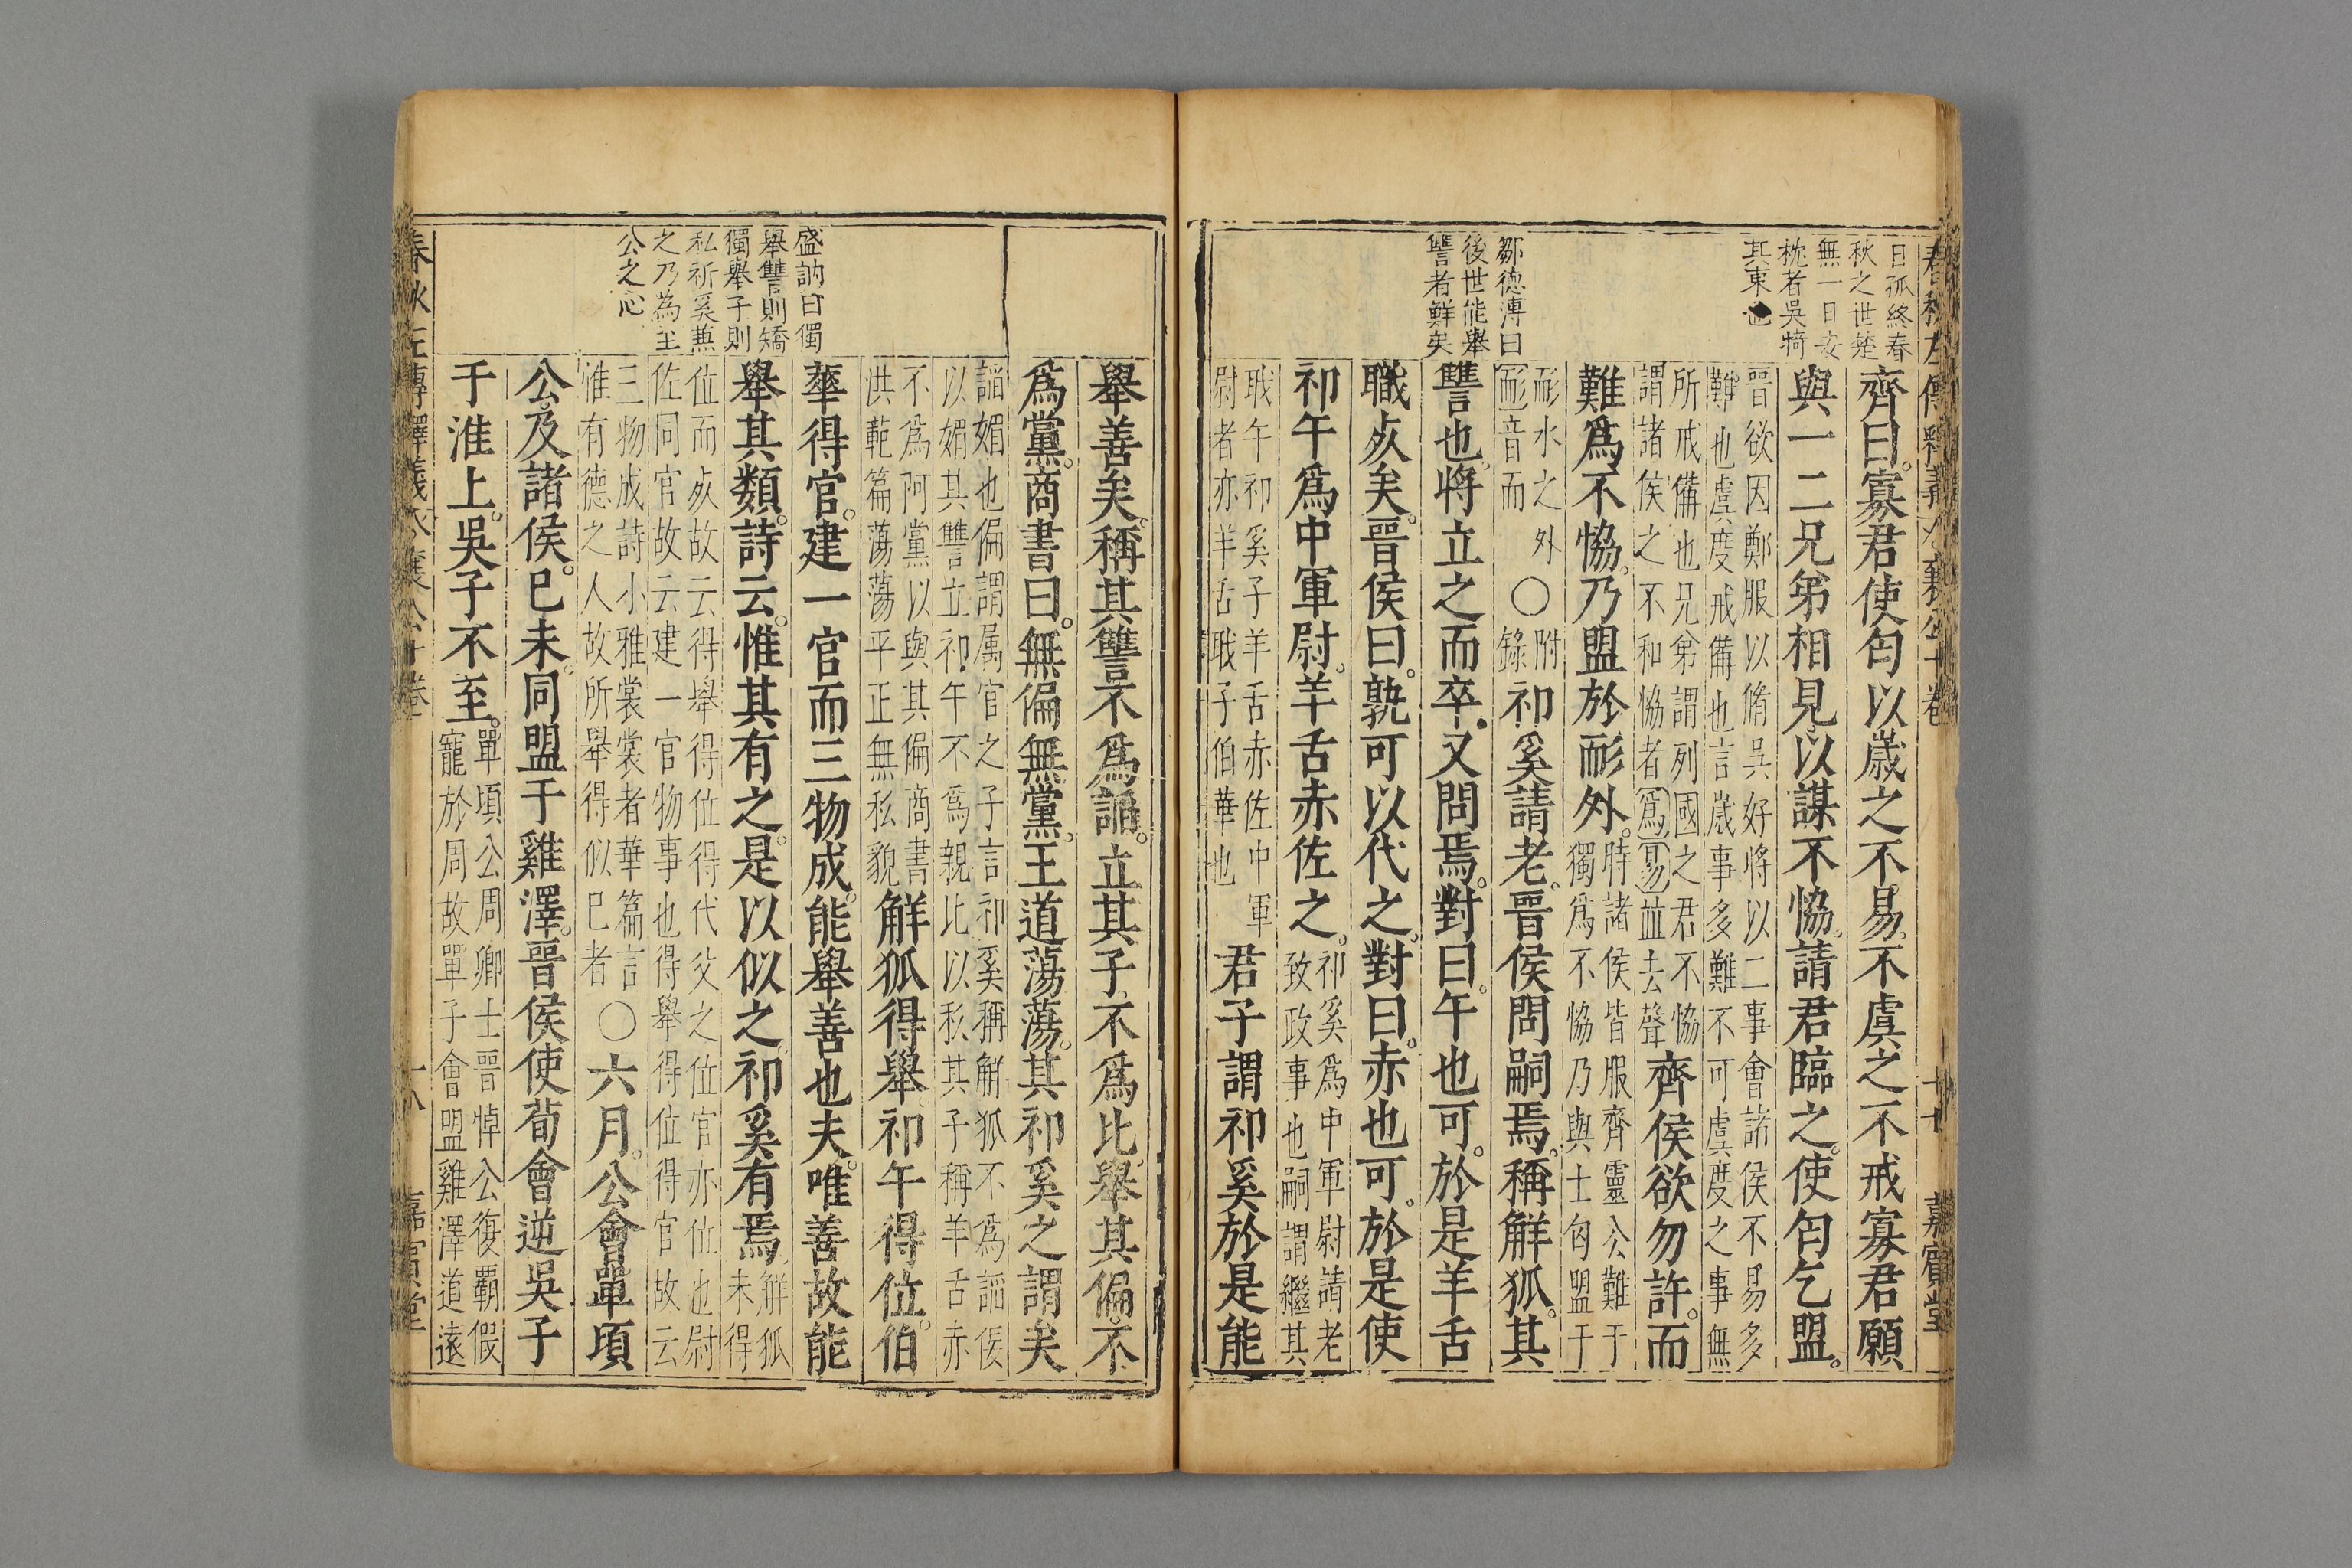 日孤終春
秋之世楚
無一日安
枕者吳犄
其東也
鄒德溥曰
後世能舉
讐者鮮矣
齊曰寡君使匄以歲之不易不虞之不戒寡君願
與一二兄弟相見以謀不恊請君臨之使匄乞盟
晉欲因鄭服以脩吳好將以二事會諸侯不易多
難也虞度戒備也言歲事多難不可虞度之事無
所戒備也兄弟謂列國之君不恊
謂諸侯之不和恊者爲易並去聲
齊侯欲勿許而
難爲不恊乃盟於耏外
時諸侯皆服齊靈公難于
獨爲不恊乃與士匄盟于
耏水之外
耏音而
○附
錄
祁奚請老晉侯問嗣焉稱解狐其
讐也將立之而卒又問焉對曰午也可於是羊舌
職㱙矣晉侯曰孰可以代之對曰赤也可於是使
祁午爲中軍尉羊舌赤佐之
祁奚爲中軍尉請老
致政事也嗣謂繼其
職午祁奚子羊舌赤佐中軍
尉者亦羊舌職子伯華也
君子謂祁奚於是能
嘉賓堂
盛訥曰獨
舉讐則矯
獨舉子則
私祈奚兼
之乃為至
公之心
舉善矣稱其讐不爲諂立其子不爲比舉其偏不
爲黨商書曰無偏無黨王道蕩蕩其祁奚之謂矣
諂媚也偏謂属官之子言祁奚稱解狐不為諂佞
以媚其讐立祁午不爲親比以私其子稱羊舌赤
不爲阿黨以與其偏商書
洪範篇蕩蕩平正無私貌
解狐得舉祁午得位伯
華得官建一官而三物成能舉善也夫唯善故能
舉其類詩云惟其有之是以似之祁奚有焉
解狐
未得
位而㱙故云得舉得位得代父之位官亦位也尉
佐同官故云建一官物事也得舉得位得官故云
三物成詩小雅裳裳者華篇言
惟有德之人故所舉得似巳者
○六月公會單頃
公及諸侯巳未同盟于雞澤晉侯使荀會逆吳子
于淮上吳子不至
單頃公周卿士晉悼公復霸假
寵於周故單子會盟雞澤道遠